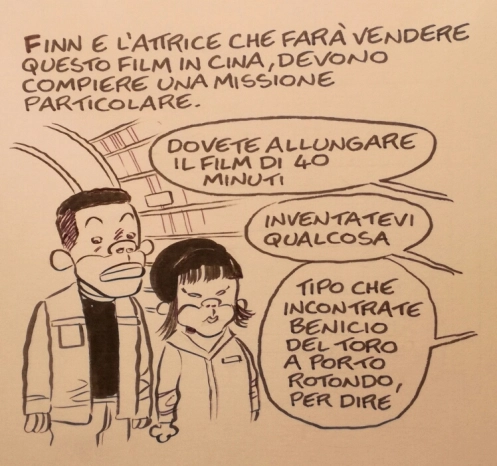 FINN E L'ATTRICE CHE FARÀ VENDERE
QUESTO FILM IN CINA, DEVONO
COMPIERE UNA MISSIONE
PARTICOLARE.
DOVETE ALLUNGARE
IL FILM DI 40
MINUTI
INVENTATEVI
QUALCOSA
TIPO CHE
INCONTRATE
BENICIO
DEL TORO
A PORTO
ROTONDO,
PER DIRE